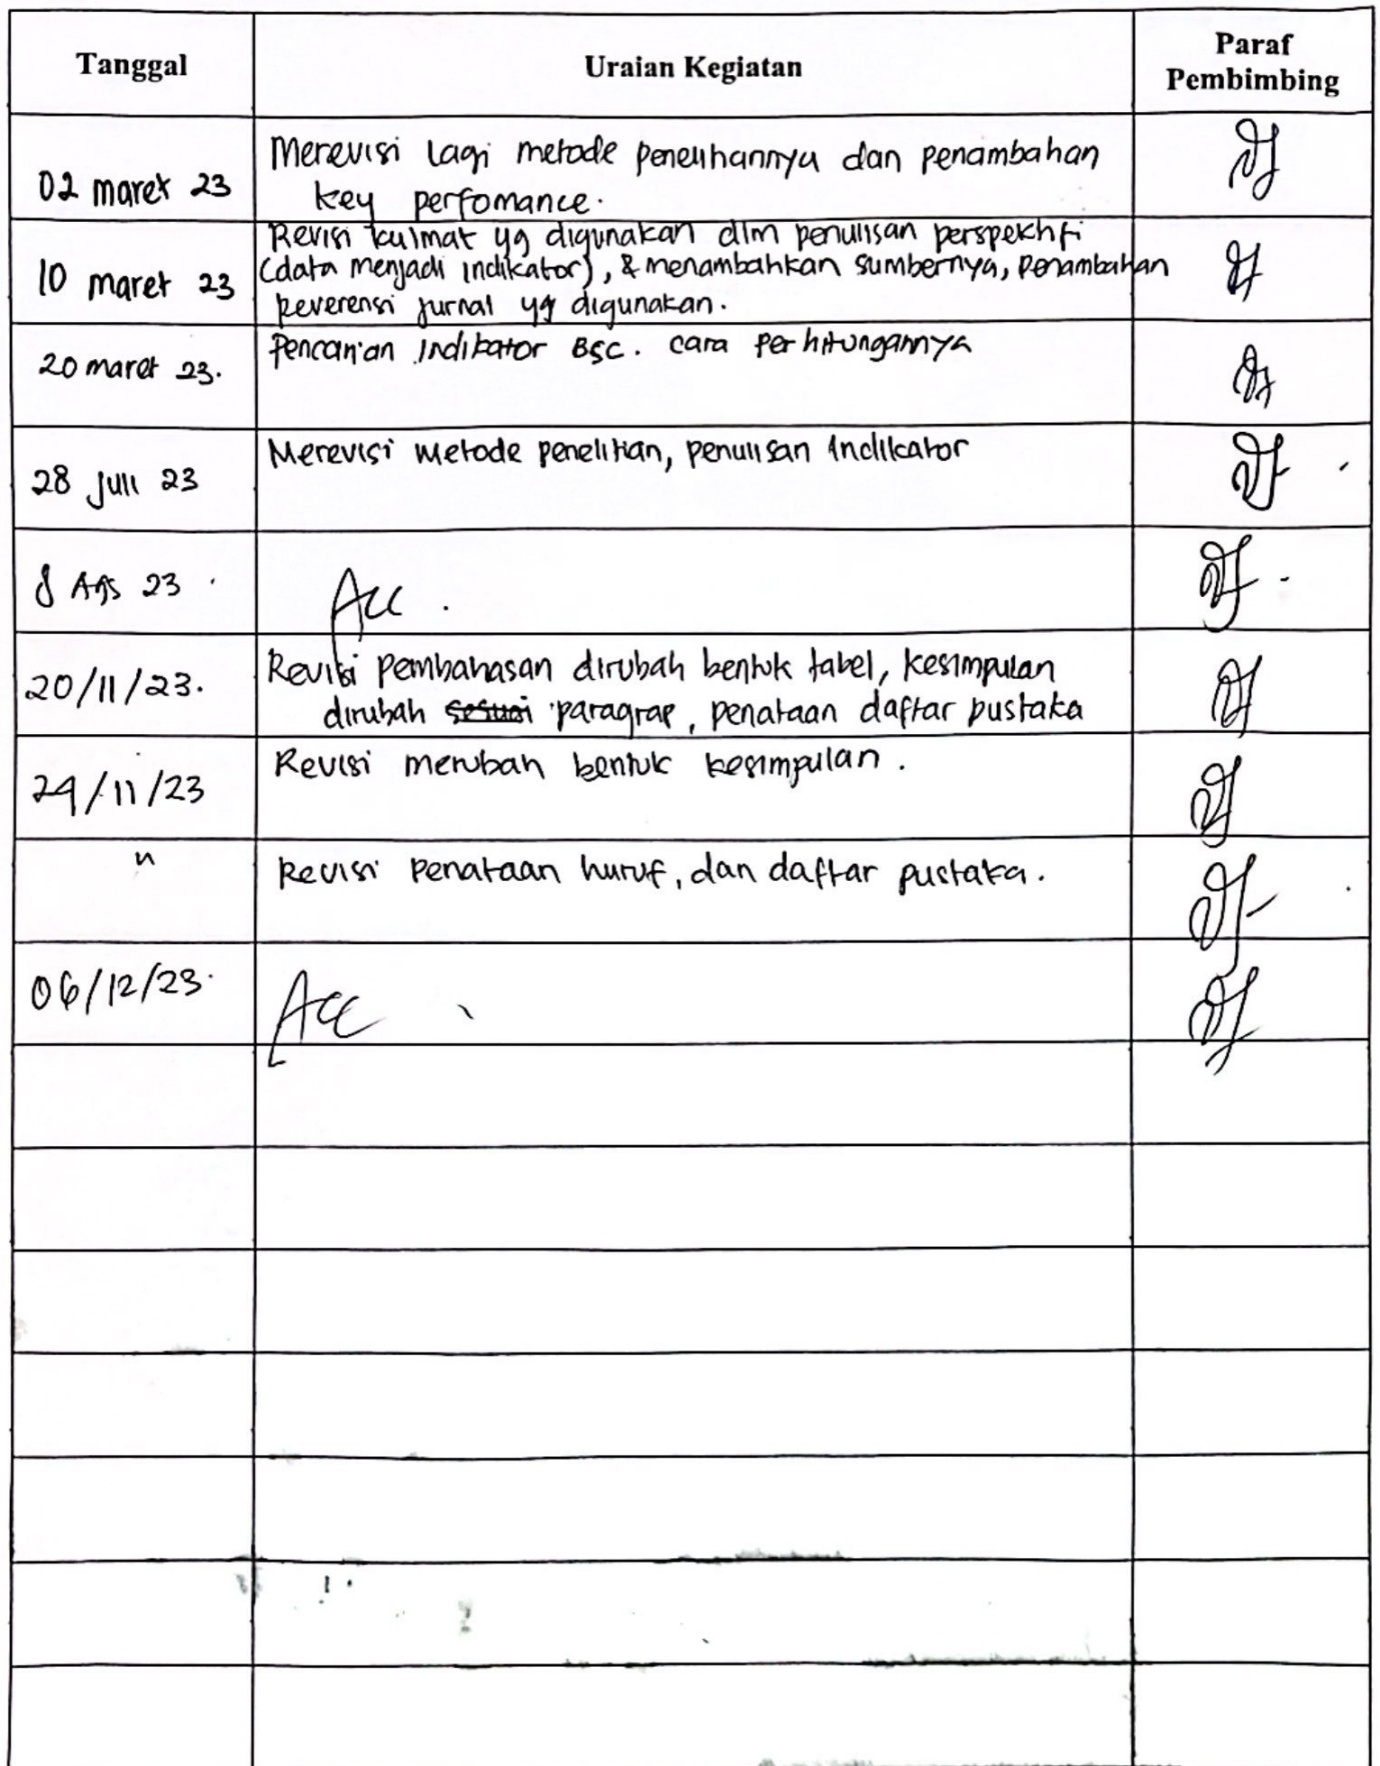 Tanggal
Uraian Kegiatan
Paraf
Pembimbing
02 maret 23
Merevisi Lagi metode penelihannya dan penambahan
key perfomance.
10 maret 23
Revisi kalimat yg digunakan dlm penulisan perspektif
(data menjadi indikator), & menambahkan sumbernya, penambahan
reverensi jurnal yg digunakan.
20 maret 23.
pencarian indikator BSC. cara perhitungannya
28 Juli 23
Merevisi metode penelitian, penulisan indikator
8 Ags 23
Acc.
20/11/23.
Revisi pembahasan dirubah bentuk tabel, kesimpulan
dirubah sesuai paragrap, penataan daftar pustaka
24/11/23
Revisi merubah bentuk kesimpulan.
"
Revisi penataan huruf, dan daftar pustaka.
06/12/23.
Acc